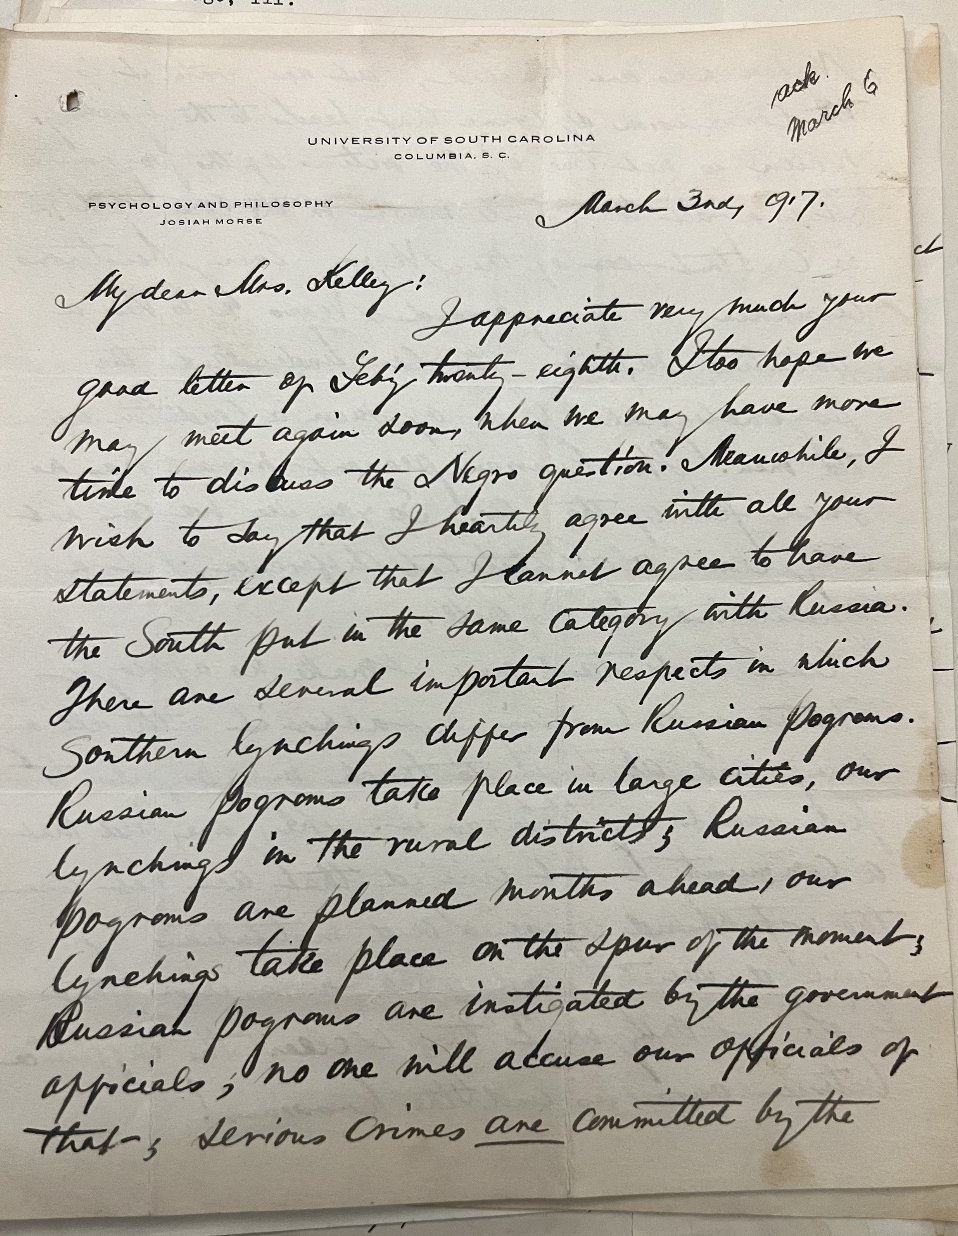 ack.
March 6
UNIVERSITY OF SOUTH CAROLINA
COLUMBIA, S. C.
PSYCHOLOGY AND PHILOSOPHY
JOSIAH MORSE
March 3rd, 1917.
My dear Mrs. Kelley:
I appreciate very much your
good letter of Feb'y twenty-eighth. I too hope we
may meet again soon, when we may have more
time to discuss the Negro question. Meanwhile, I
wish to say that I heartily agree with all your
statements, except that I cannot agree to have
the South put in the same category with Russia.
There are several important respects in which
Southern lynchings differ from Russian pogroms.
Russian pogroms take place in large cities, our
lynchings in the rural districts; Russian
pogroms are planned months ahead, our
lynchings take place on the spur of the moment;
Russian pogroms are instigated by the government
officials; no one will accuse our officials of
that—; serious crimes are committed by the